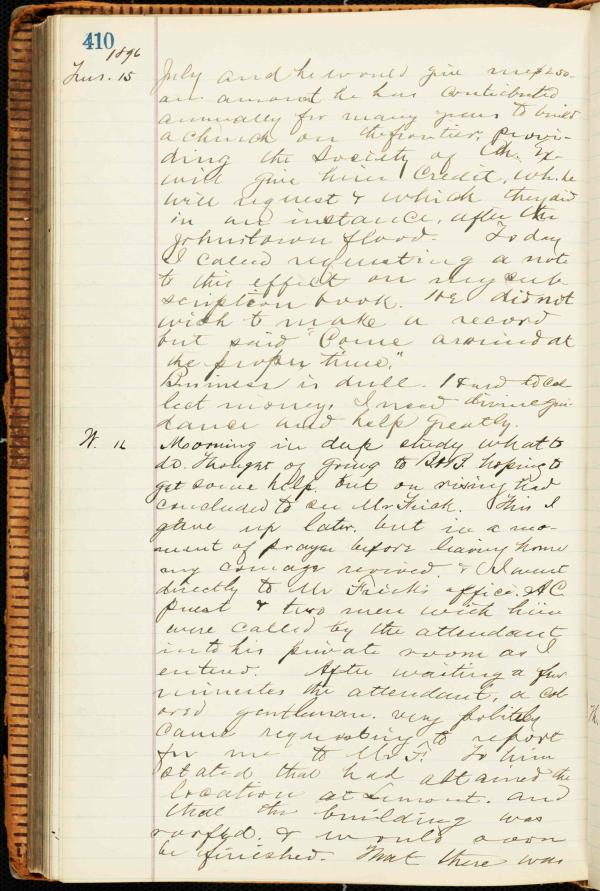 410
1896
Tues. 15
July and he would give me $250-
an amount he has contributed
annually for many years to build
a church on the frontier, provi-
ding the Society of Ch. Ex-
will give him credit, wh. he
will request & which they did
in an instance, after the
Johnstown flood. Today
I called requesting a note
to this effect on my sub-
scription book. He did not
wish to make a record
but said "Come around at
the proper time."
Business is dull. Hard to col-
lect money. I need divine gui-
dance and help greatly.
W. 16
Morning in deep study what to
do. Thought of going to hoping to
get some help. but on rising had
concluded to see Mr Frick. This I
gave up later. but in a mo-
ment of prayer before leaving home
my courage revived. & I went
directly to Mr Frick's office. A C.
priest & two men with him
were called by the attendant
into his private room as I
entered. After waiting a few
minutes the attendant, a col-
ored gentleman. very politely
came requesting to report
for me to Mr F. To him
stated that had obtained the
location at Lemont. and
that the building was
roofed. & would soon
be finished. That there was